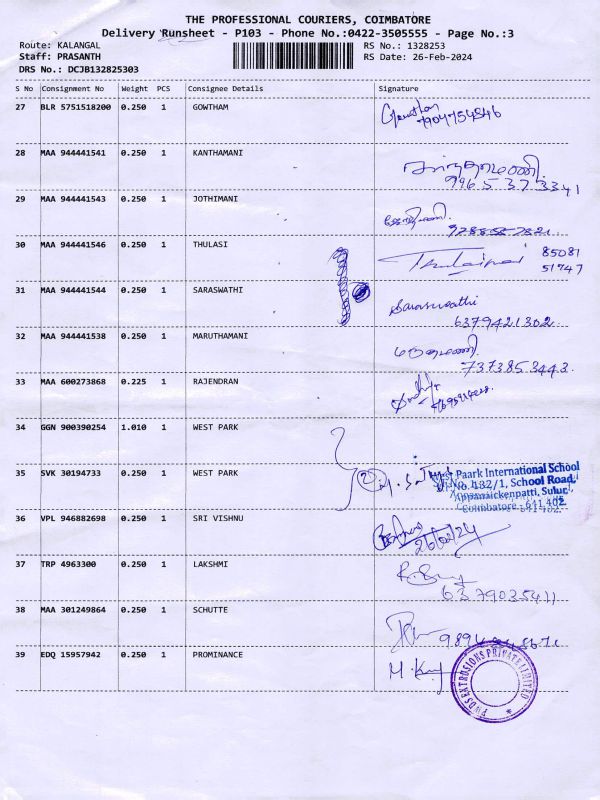 THE PROFESSIONAL COURIERS, COIMBATORE
Delivery Runsheet - P103 - Phone No.:0422-3505555 - Page No.:3
Route: KALANGAL RS No.: 1328253
Staff: PRASANTH RS Date: 26-Feb-2024
DRS No.: DCJB132825303
S No Consignment No Weight PCS Consignee Details Signature
27 BLR 5751518200 0.250 1 GOWTHAM
7904754846
28 MAA 944441541 0.250 1 KANTHAMANI
996 5 37 3341
29 MAA 944441543 0.250 1 JOTHIMANI ஜோதிமணி
30 MAA 944441546 0.250 1 THULASI 85081
51747
31 MAA 944441544 0.250 1 SARASWATHI Saraswathi
6379421302
32 MAA 944441538 0.250 1 MARUTHAMANI மருதமணி
7373853443
33 MAA 600273868 0.225 1 RAJENDRAN
34 GGN 900390254 1.010 1 WEST PARK
35 SVK 30194733 0.250 1 WEST PARK 2 Paark International School
No. 132/1, School Road,
Appanaickenpatti, Sulur,
Coimbatore - 641 402.
36 VPL 946882698 0.250 1 SRI VISHNU
26/02/24
37 TRP 4963300 0.250 1 LAKSHMI
6379035411
38 MAA 301249864 0.250 1 SCHUTTE
39 EDQ 15957942 0.250 1 PROMINANCE EXTRUSIONS PRIVATE LIMITED